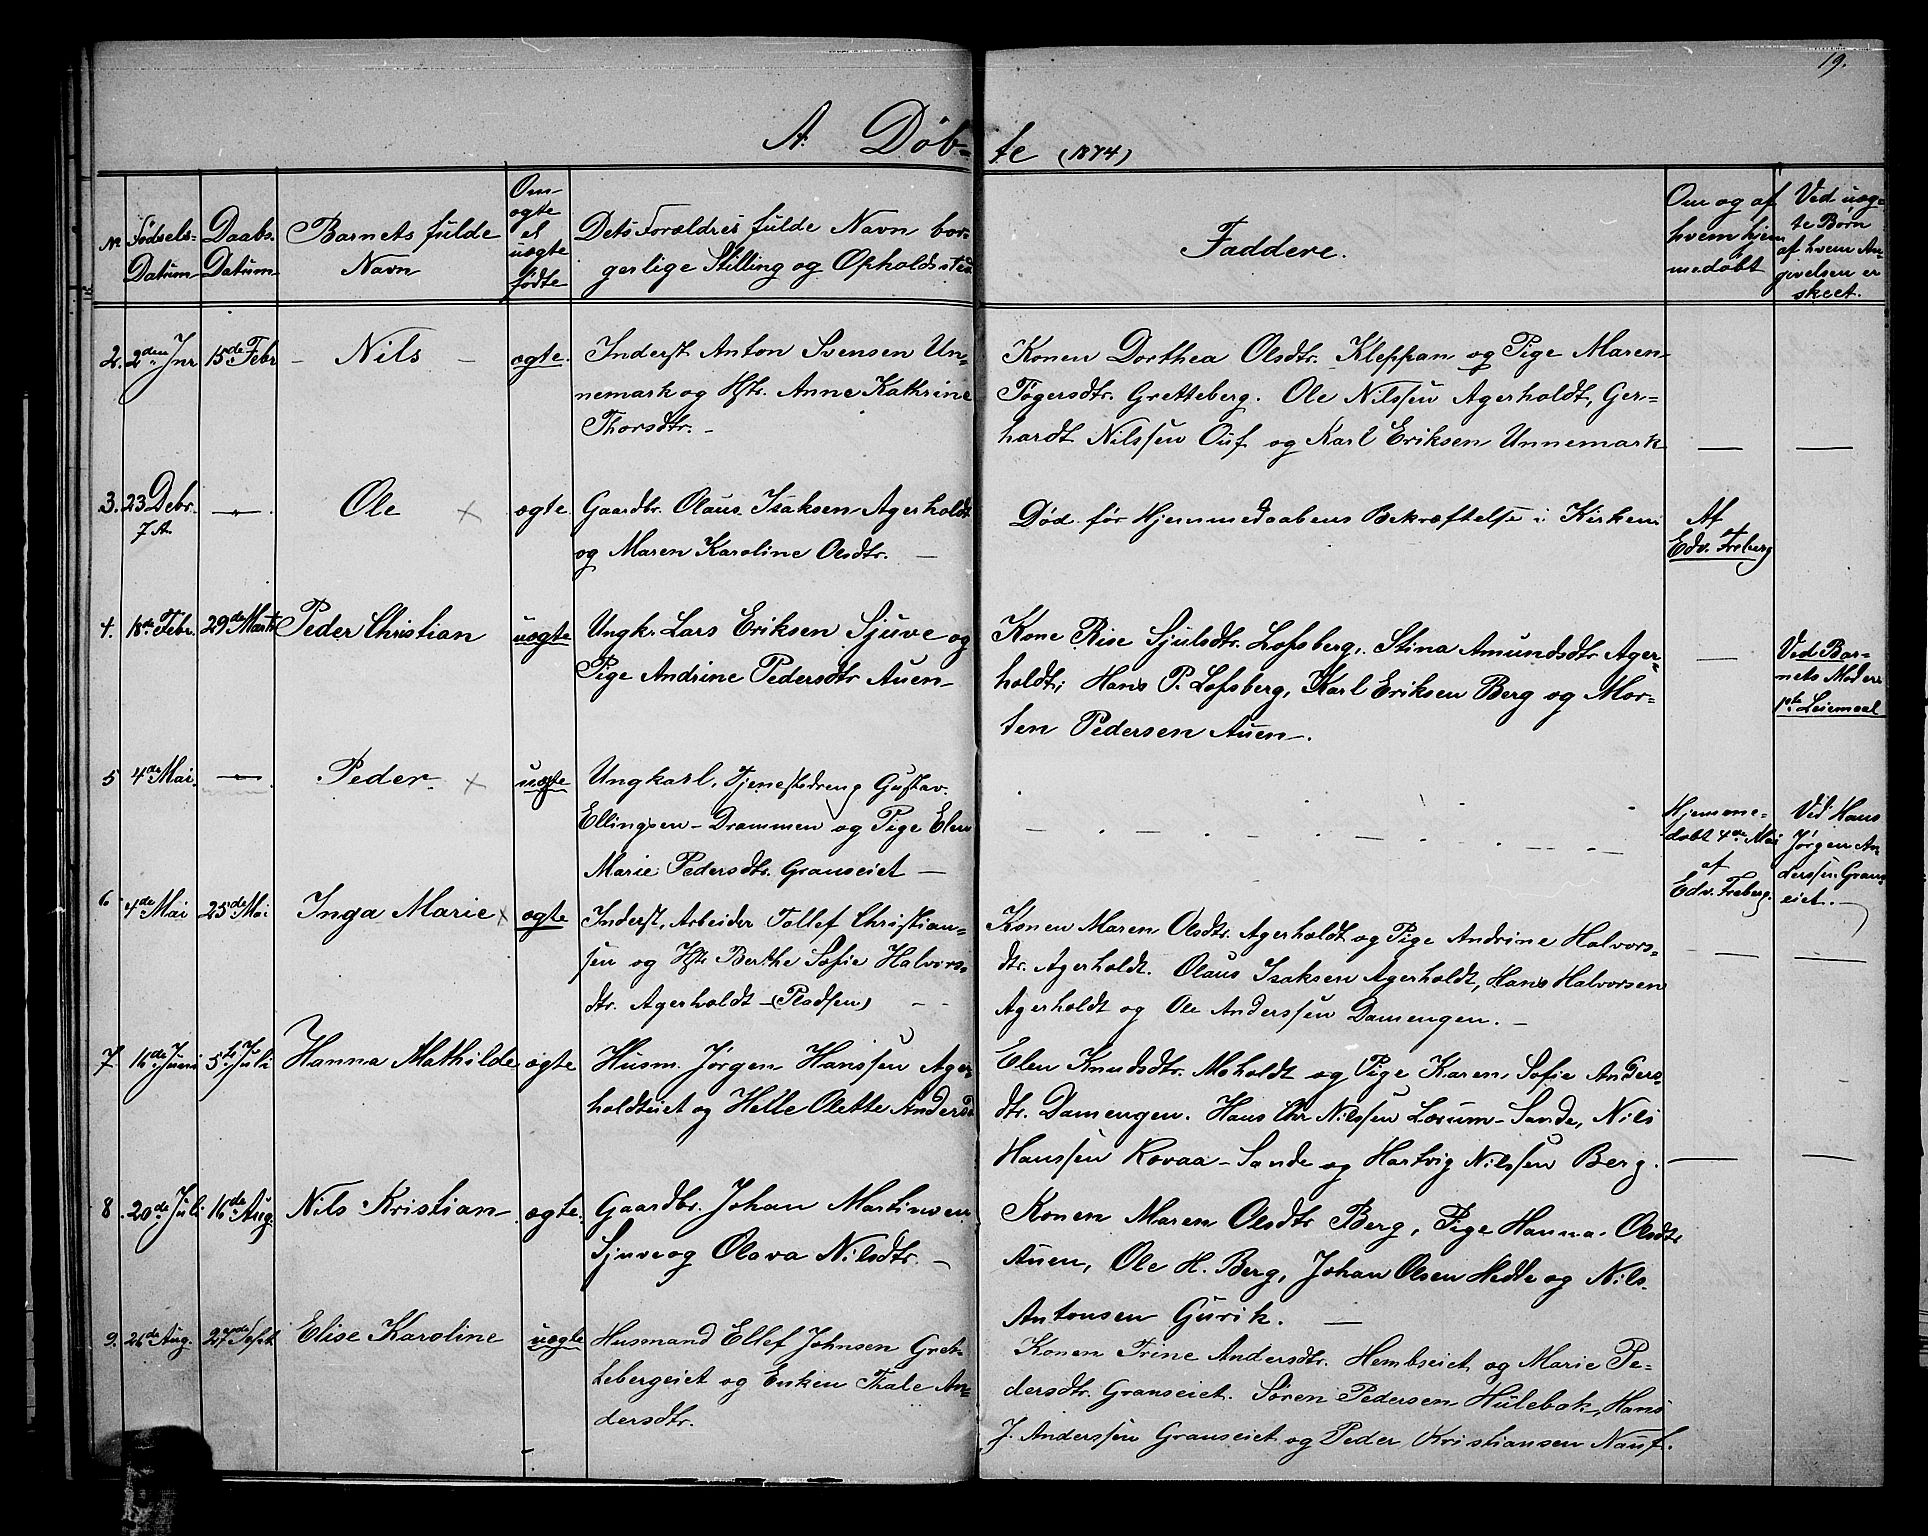 19.
A. Døb-
te (1874)
No Fødsels-Datum Daabs-Datum Barnets fulde Navn Om ægte el uægte fødte Dets Forældres fulde Navn borgerlige Stilling og Opholdssted Faddere. Om og af hvem hjemmedøbt Ved uægte Børn af hvem Angivelsen er skeet.
2. 2den Jnr 15de Febr - Nils - ægte. Inderst Anton Svensen Un-
nemark og Hstr. Anne Kathrine
Thorsdtr. -
Konen Dorthea Olsdtr. Kleppan og Pige Maren
Togersdtr. Gretteberg. Ole Nilssen Agerholdt, Ger-
hardt Nilssen Ouf og Karl Eriksen Unnemark — —
3. 23 Debr. — Ole x ægte. Gaardbr. Olaus Isaksen Agerholdt
og Maren Karoline Olsdtr. —
Død før Hjemmedaabens Bekræftelse i Kirken. Af
Edv. Freberg
4. 18de Febr. 29de Marts Peder Christian uægte Ungkr. Lars Eriksen Sjuve og
Pige Andrine Pedersdtr Auen-
Kone Rise Sjulsdtr. Lofsberg, Stina Amundsdtr Ager-
holdt; Hans P. Lofsberg, Karl Eriksen Berg og Mor-
ten Pedersen Auen -.
— Ved Bar-
nets Moder
1ste Leiemaal
5 4de Mai. — Peder. x uægte Ungkarl, Tjenestedreng Gustav
Ellingsen - Drammen og Pige Elen
Marie Pedersdtr. Granseiet —
Hjemme-
døbt 4de Mai
af
Edv. Freberg.
Ved Hans
Jørgen An-
derssen Grans-
eiet. —
6 4de Mai 25de Mai Inga Marie x ægte Inderst, Arbeider Tollef Christian-
sen og Hstr Berthe Sofie Halvors-
dtr. Agerholdt - (Pladsen) - -
Konen Maren Olsdtr. Agerholdt og Pige Andrine Halvors-
dtr. Agerholdt. Olaus Isaksen Agerholdt, Hans Halvorsen
Agerholdt og Ole Anderssen Damengen. - — —
7. 16de Juni 5te Juli Hanna Mathilde ægte Husm. Jørgen Hanssen Ager-
holdteiet og Helle Olette Andersd
Elen Knudsdtr. Moholdt og Pige Karen Sofie Anders-
dtr. Damengen. Hans Chr Nilssen Lørum - Sande, Nils
Hanssen Rovaa - Sande og Hartvig Nilssen Berg. — —
8. 20de Juli 16de Aug. Nils Kristian ægte. Gaardbr. Johan Martinsen
Sjuve og Olava Nilsdtr. —
Konen Maren Olsdtr Berg, Pige Hanna Olsdtr
Auen, Ole H. Berg, Johan Olsen Hedde og Nils
Antonsen Gurik. —
9. 26de Aug. 27de Sept. Elise Karoline uægte Husmand Ellef Johnsen Gret-
tebergeiet og Enken Thale An-
dersdtr.
Konen Trine Andersdtr. Hembseiet og Marie Pe-
dersdtr. Granseiet. Søren Pedersen Hulebak, Hans
J. Anderssen Granseiet og Peder Kristiansen Nauf.